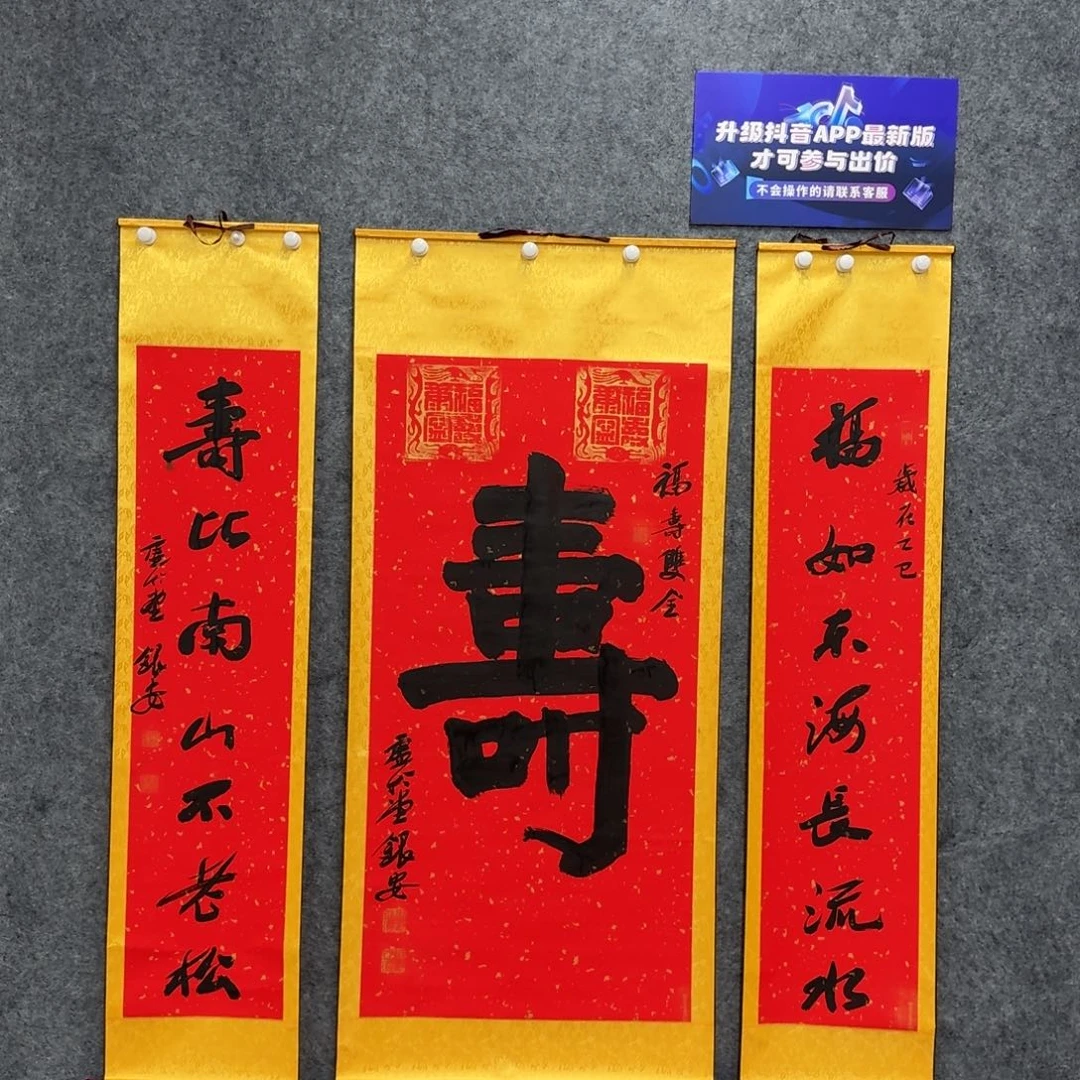 升级抖音APP最新版
才可参与出价
不会操作的请联系客服
福如东海長流水
歲在乙巳
福壽雙全
壽
銀安
壽比南山不老松
銀安